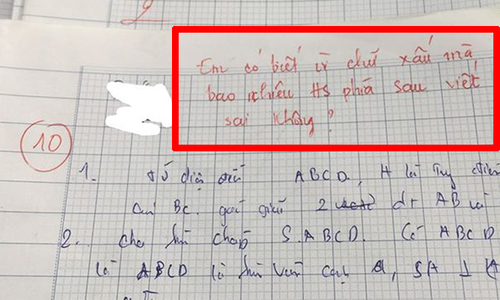 Em có biết vì chữ xấu mà
bao nhiêu HS phía sau viết
sai không?
10
1. Tứ diện đều ABCD, H là trung điểm
cạnh BC. góc giữa 2 đt AB và
2. cho hình chóp S.ABCD. Có ABCD
là ABCD là hình vuông cạnh a, SA ⊥